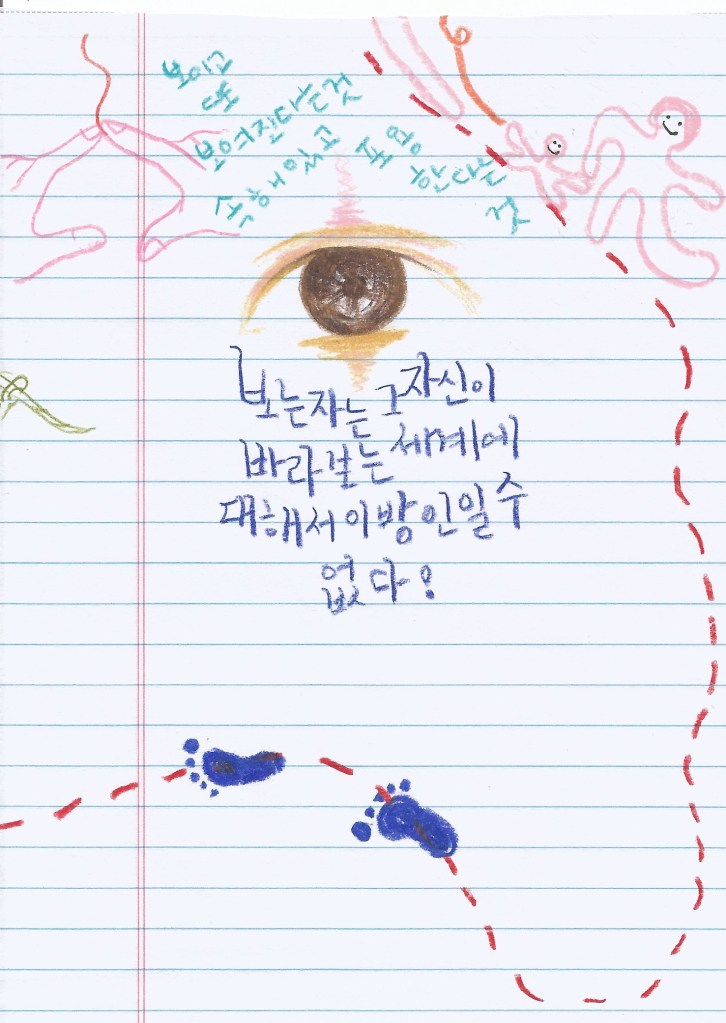 보이고
또
보여진다는것
속해있고
한다는
것
보는자는 그자신이
바라보는 세계에
대해서 이방인일 수
없다!